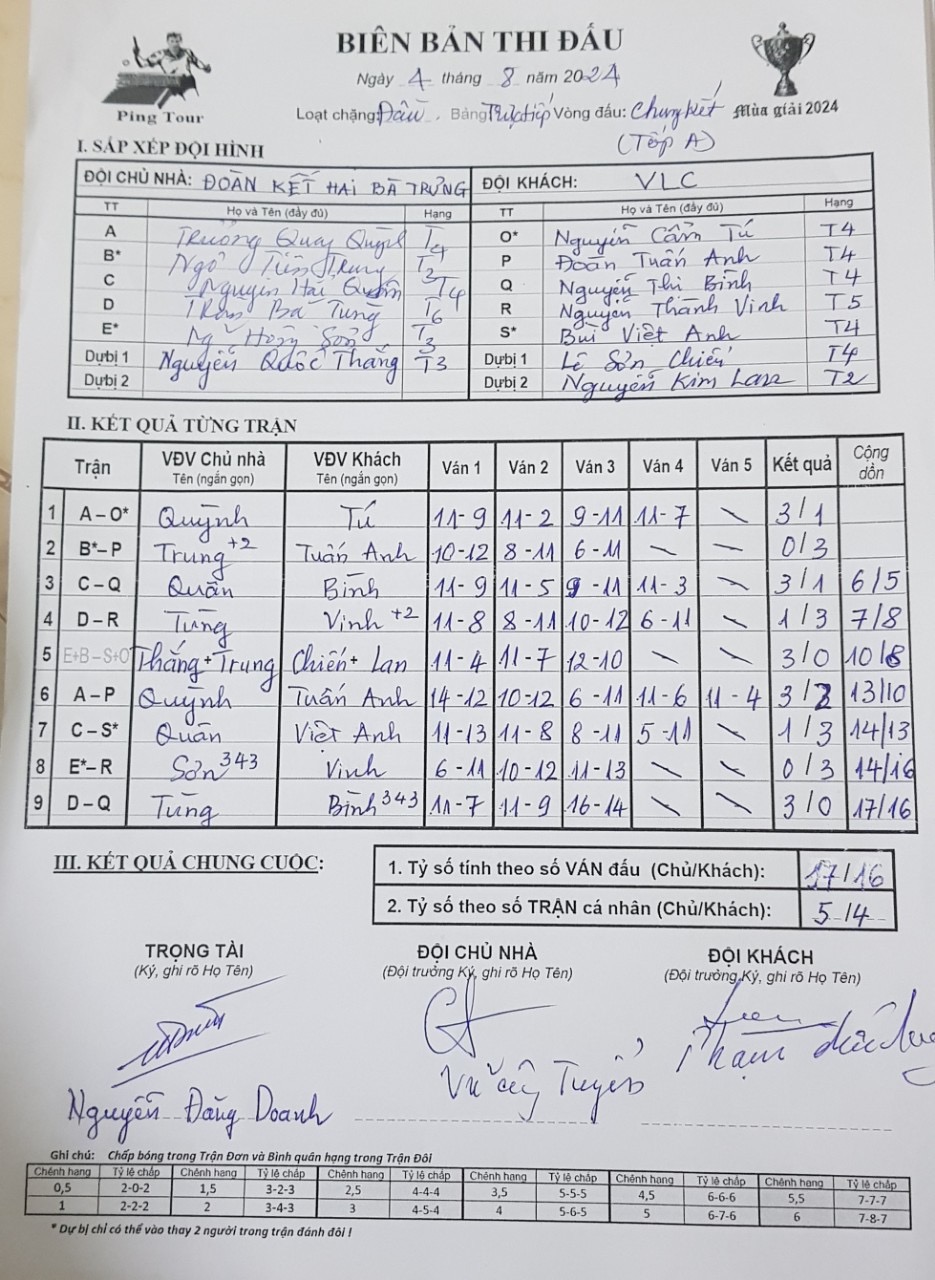 BIÊN BẢN THI ĐẤU
Ngày 4 tháng 8 năm 2024
Ping Tour
Loạt chặng: Đầu. Bảng Trực tiếp Vòng đấu: Chung kết Mùa giải 2024
(Tốp A)
I. SẮP XẾP ĐỘI HÌNH
ĐỘI CHỦ NHÀ: ĐOÀN KẾT HAI BÀ TRƯNG ĐỘI KHÁCH: VLC
TT Họ và Tên (đầy đủ) Hạng TT Họ và Tên (đầy đủ) Hạng
A Trương Quay Quỳnh T4 O* Nguyễn Cẩm Tú T4
B* Ngô Tiến Trung T3 P Đoàn Tuấn Anh T4
C Nguyễn Hải Quân T4 Q Nguyễn Thị Bình T4
D Trần Bá Tùng T6 R Nguyễn Thành Vinh T5
E* Ng Hồng Sơn T3 S* Bùi Việt Anh T4
Dự bị 1 Nguyễn Quốc Thắng T3 Dự bị 1 Lê Sơn Chiến T4
Dự bị 2 Dự bị 2 Nguyễn Kim Lan T2
II. KẾT QUẢ TỪNG TRẬN
Trận VĐV Chủ nhà VĐV Khách Ván 1 Ván 2 Ván 3 Ván 4 Ván 5 Kết quả Cộng dồn
Tên (ngắn gọn) Tên (ngắn gọn)
1 A – O* Quỳnh Tú 11-9 11-2 9-11 11-7 \ 3/1
2 B*– P Trung +2 Tuấn Anh 10-12 8-11 6-11 \ \ 0/3
3 C – Q Quân Bình 11-9 11-5 9-11 11-3 \ 3/1 6/5
4 D – R Tùng Vinh +2 11-8 8-11 10-12 6-11 \ 1/3 7/8
5 E+B – S+O Thắng + Trung Chiến + Lan 11-4 11-7 12-10 \ \ 3/0 10/8
6 A – P Quỳnh Tuấn Anh 14-12 10-12 6-11 11-6 11-4 3/2 13/10
7 C – S* Quân Việt Anh 11-13 11-8 8-11 5-11 \ 1/3 14/13
8 E*– R Sơn 343 Vinh 6-11 10-12 11-13 \ \ 0/3 14/16
9 D – Q Tùng Bình 343 11-7 11-9 16-14 \ \ 3/0 17/16
III. KẾT QUẢ CHUNG CUỘC:
1. Tỷ số tính theo số VÁN đấu (Chủ/Khách): 17/16
2. Tỷ số theo số TRẬN cá nhân (Chủ/Khách): 5/4
TRỌNG TÀI ĐỘI CHỦ NHÀ ĐỘI KHÁCH
(Ký, ghi rõ Họ Tên) (Đội trưởng Ký, ghi rõ Họ Tên) (Đội trưởng Ký, ghi rõ Họ Tên)
Nguyễn Đăng Doanh Vũ Tuyến Phạm Đức
Ghi chú: Chấp bóng trong Trận Đơn và Bình quân hạng trong Trận Đôi
Chênh hạng Tỷ lệ chấp Chênh hạng Tỷ lệ chấp Chênh hạng Tỷ lệ chấp Chênh hạng Tỷ lệ chấp Chênh hạng Tỷ lệ chấp Chênh hạng Tỷ lệ chấp
0,5 2-0-2 1,5 3-2-3 2,5 4-4-4 3,5 5-5-5 4,5 6-6-6 5,5 7-7-7
1 2-2-2 2 3-4-3 3 4-5-4 4 5-6-5 5 6-7-6 6 7-8-7
* Dự bị chỉ có thể vào thay 2 người trong trận đánh đôi !